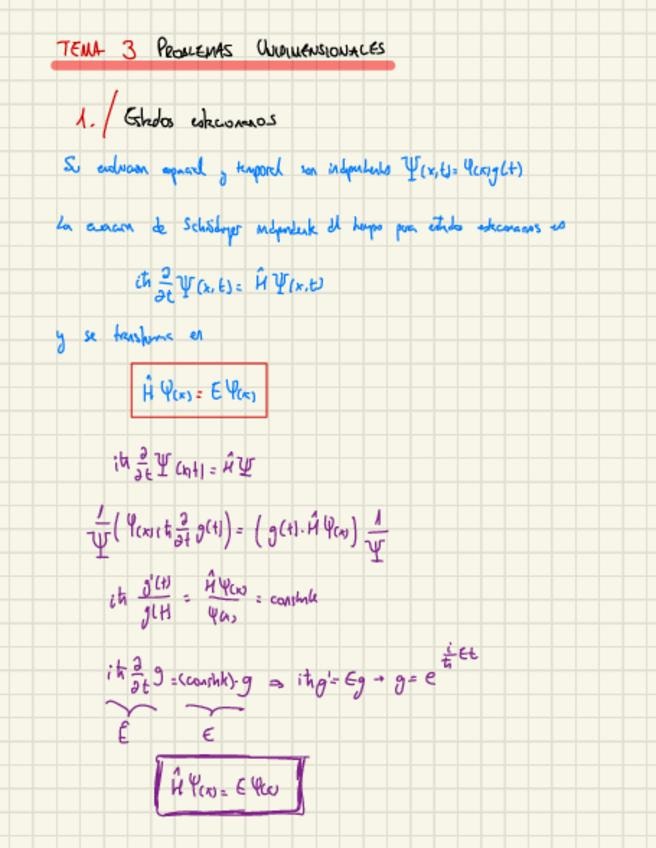 TEMA 3 PROBLEMAS UNIDIMENSIONALES
1./ Estados estacionarios
Si evolucion espacial y temporal son independientes Ψ(x,t)= φ(x)g(t)
La ecuacion de Schrödinger independiente del tiempo para estados estacionarios es
iħ ∂/∂t Ψ(x,t)= Ĥ Ψ(x,t)
y se transforma en
Ĥ φ(x) = E φ(x)
iħ ∂/∂t Ψ(x,t) = Ĥ Ψ
1/Ψ (φ(x) iħ ∂/∂t g(t)) = (g(t)·Ĥ φ(x)) 1/Ψ
iħ g'(t)/g(t) = Ĥφ(x)/φ(x) = constante
iħ ∂/∂t g =(constante)·g ⇒ iħg'= Eg → g= e^{i/ħ Et}
Ê E
Ĥ φ(x) = E φ(x)